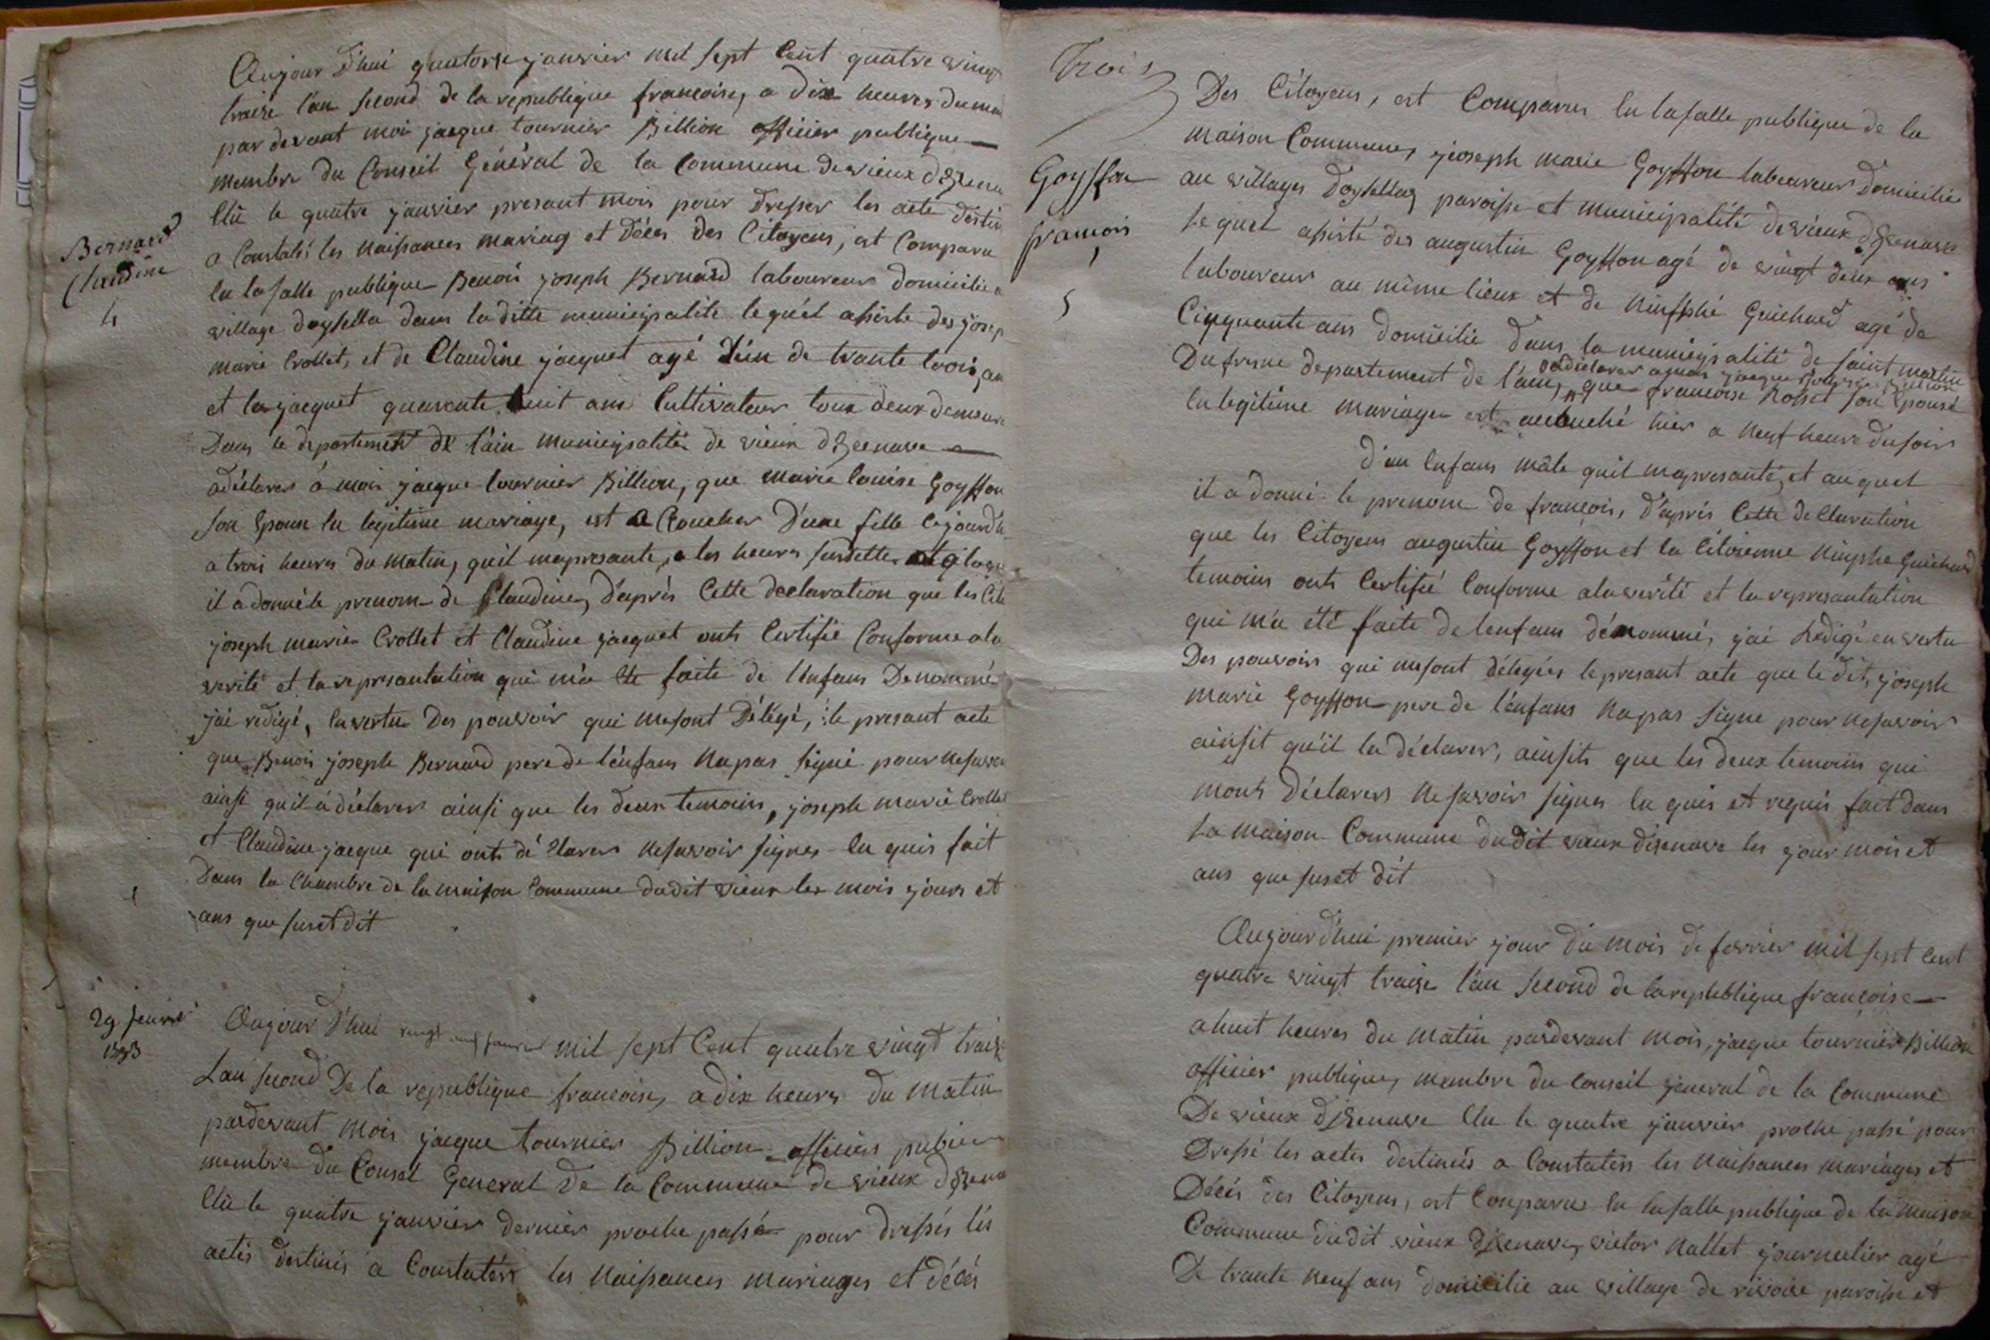 Aujour d'hui quatorse janvier mil sept Cent quatre vingt
traize l'an second de la republique francoise, a dix heures du ma
par devant moi jacque tournier Billion officier publique
membre du Conseil Général de la Commune de vieux d'Izena
Elû le quatre janvier presant mois pour dresser les acte destin
Bernard
Claudine
4
a Constatés les Naissances mariag et Décés des Citoyens, est Comparu
en la salle publique Benoi joseph Bernard laboureur domicilié a
village doysella dans la ditte municipalité lequél assisté des josep
marie Crollet, et de Claudine jacquet agé d'un de trante trois, an
et la jacquet quarente huit ans Cultivateur toux deux demeura
Dans le departement de l'ain municipalité de vieux d'Izenave
a déclarer á moi jacque tournier Billion, que marie louise Goyffon
son Epouse en legitime mariage, est a Coucher d'une fille cejourd'h
a trois heures du matin, quil ma presante, a les heures susdette
il a donné le prenom de Claudine, d'après Cette declaration que les Cito
joseph marie Crollet et Claudine jacquet onts Certifié Conforme a la
verité et la representation qui m'a été faite de l'enfans Denommé
j'ai redigé, en vertu des pouvoir qui me sont Délégé, le presant acte
que Benoi joseph Bernard pere de l'énfans na pas signé pour ne savoi
ainsi quil á déclarer ainsi que les deux temoins, joseph marie Crollet
et Claudine jacque qui onts déClarer ne savoir signer en quis fait
Dans la Chambre de la maison Commune dudit vieux les mois jours et
ans que sus et dit
29 janvier
1793
Aujour d'hui vingt neuf janvier mil sept Cent quatre vingt traize
Lan second De la republique francoise, a dix heures du matin
par devant mois jacque tournier Billion officier public
membre du Consel General De la Commune de vieux d'Izena
Elû le quatre janvier dernier proche passé pour dressés lés
actes destinés a Constatérs les Naissances mariages et décés
Trois
Des Citoyens, est Comparus en la salle publique de la
maison Commune, joseph marie Goyffon laboureur domicilié
Goyffon
francois
5
au villages d'oysellas paroisse et municipalité de vieux d'Izenave
lequel assisté des augustin Goyffon agé de vingt deux ans
laboureur au même lieux et de Ninsphé Guichard agé de
Cinquante ans domicilié dans la municipalité de saint martin
Dufresne departement de l'ain, que francoise Rosset son Epouse
a déclarer a moi jacque tournier Billion
en legitime mariage est accouché hier a neuf heure du soir
d'un enfans mâle qu'il ma presanté, et auquel
il a donné le prenom de francois, d'après Cette déClaration
que les Citoyens augustin Goyffon et la Citoienne Ninphe Guichard
temoins onts Certifié Conforme a la vérité et la representation
qui m'a été faite de l'enfans dénommé, j'ai Rédigé en vertu
Des pouvoirs qui me sont délegés le presant acte que le dit, joseph
marie Goyffon pere de l'énfans na pas signe pour ne savoir
ainsit qu'il la déclarer, ainsits que les deux temoins qui
monts déclarers ne savoir signer en quis et requis fait dans
la maison Commune dudit vieux d'Isenave les jour mois et
ans que sus et dit
Aujourd'huî premier jour du mois de fevrier mil sept cent
quatre vingt traize l'an second de la republique francoise
a huit heures du matin pardevant mois, jacque tournier Billion
officier publique, membre du Conseil jeneral de la Commune
De vieux d'Izenave Elu le quatre janvier proche passé pour
Dressé les actes destinés a Constaters les Naissances mariages et
Décés des Citoyens, est Comparus en la salle publique de la maison
Commune dudit vieux d'Izenave, victor Nallet journalier agé
De trante neuf ans domicilié au village de rivoire paroisse et